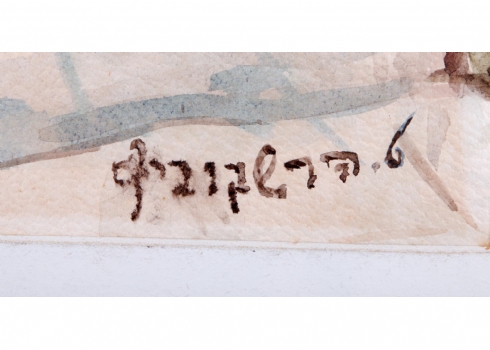 ט. הרשקוביץ